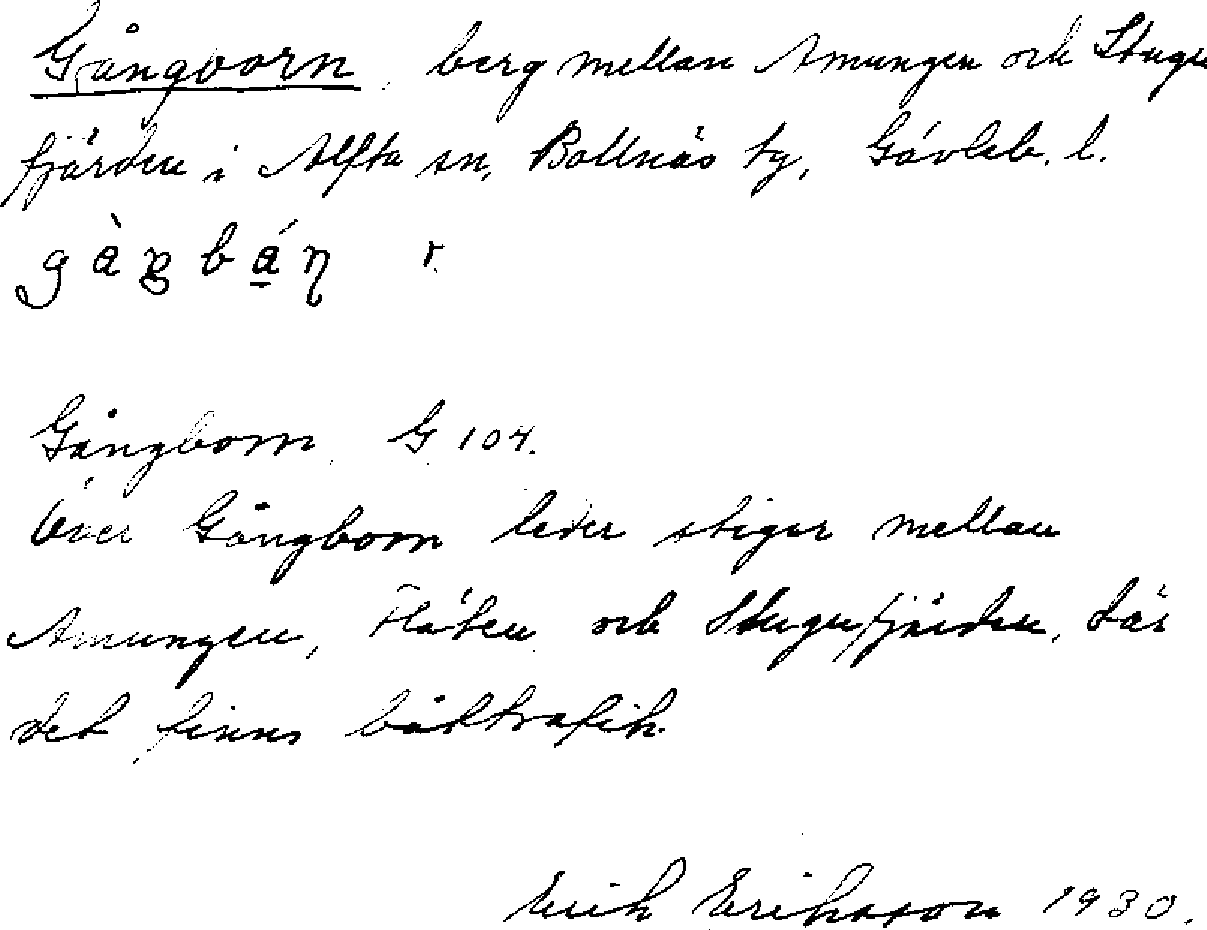 Gångborn, berg mellan Amungen och Stugu
fjärden i Alfta sn, Bollnäs tg, Gävleb. l.
r.
Gångborn G 104.
Över Gångborn leder stigar mellan
Amungen, Flåten och Stugufjärden, där
det finns båttrafik.
Erik Eriksson 1930.